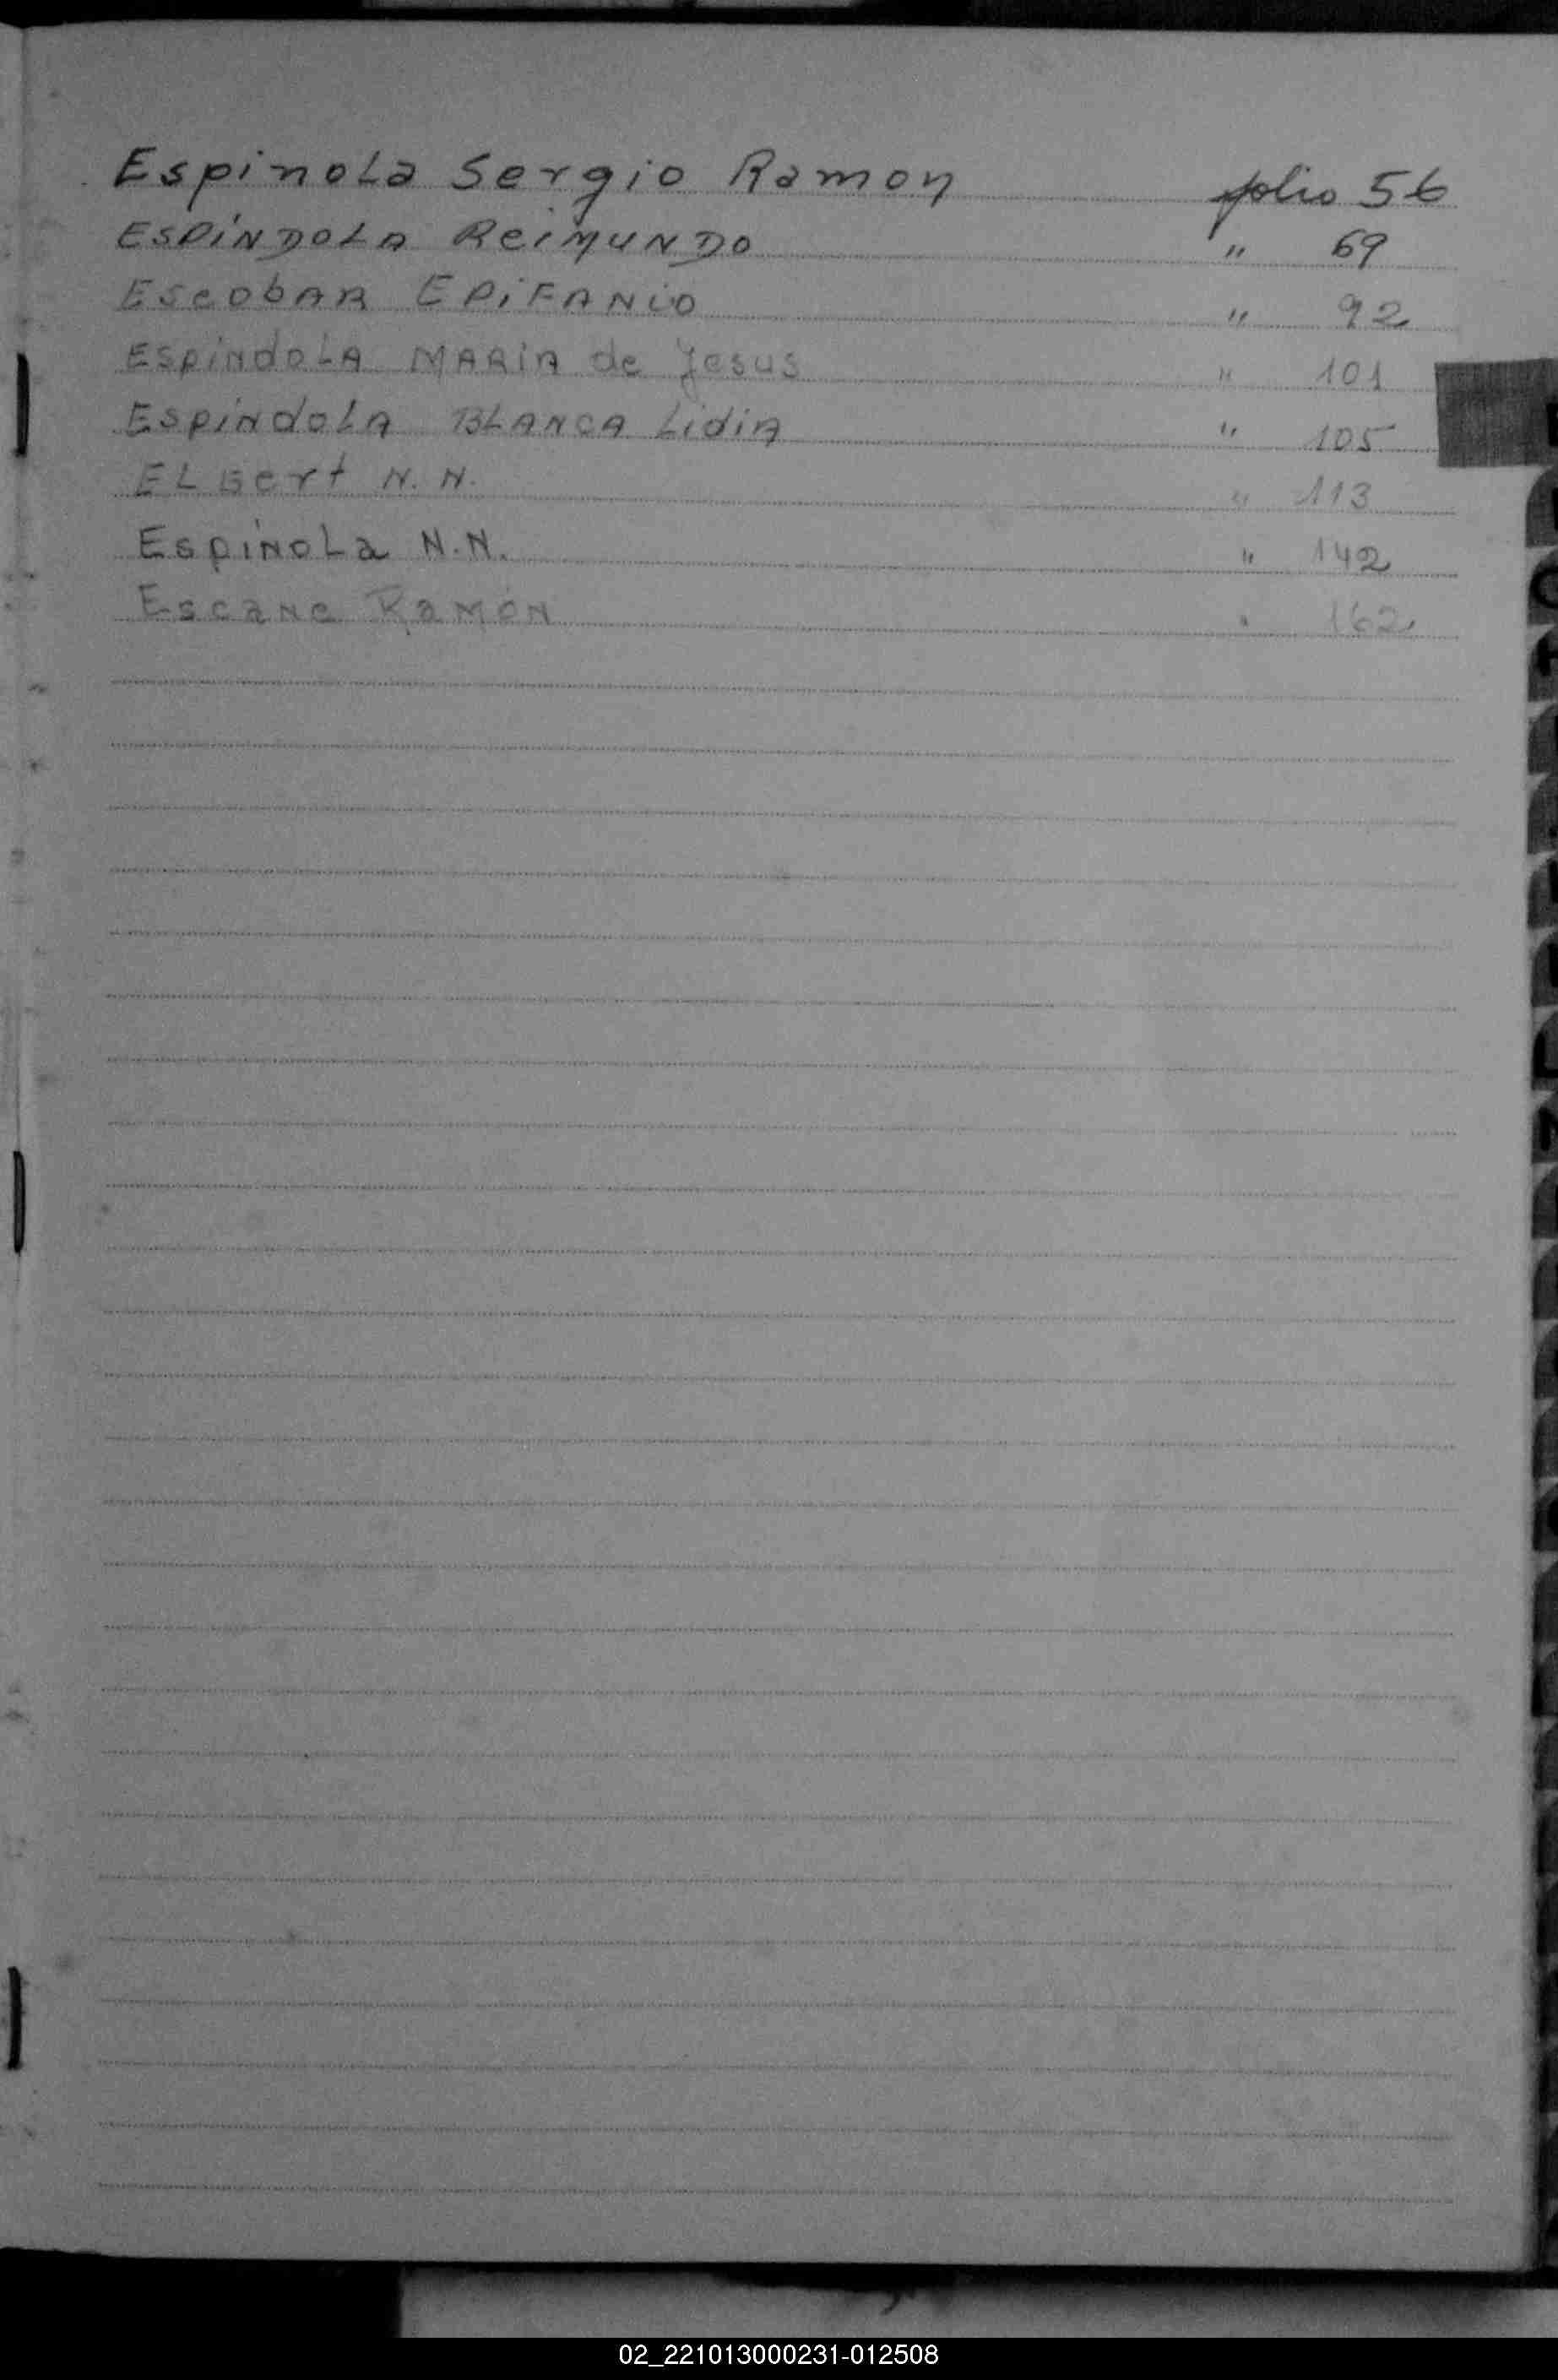 Espinola Sergio Ramon folio 56
ESPINDOLA ReiMUNDO " 69
EscobAR EPiFANio " 92
EspindoLA MARiA de Jesus " 101
EspindoLA BLANCA LidiA " 105
ELBert N.N. " 113
EspiNoLa N.N. " 142
EscaNe RaMóN " 162
02_221013000231-012508